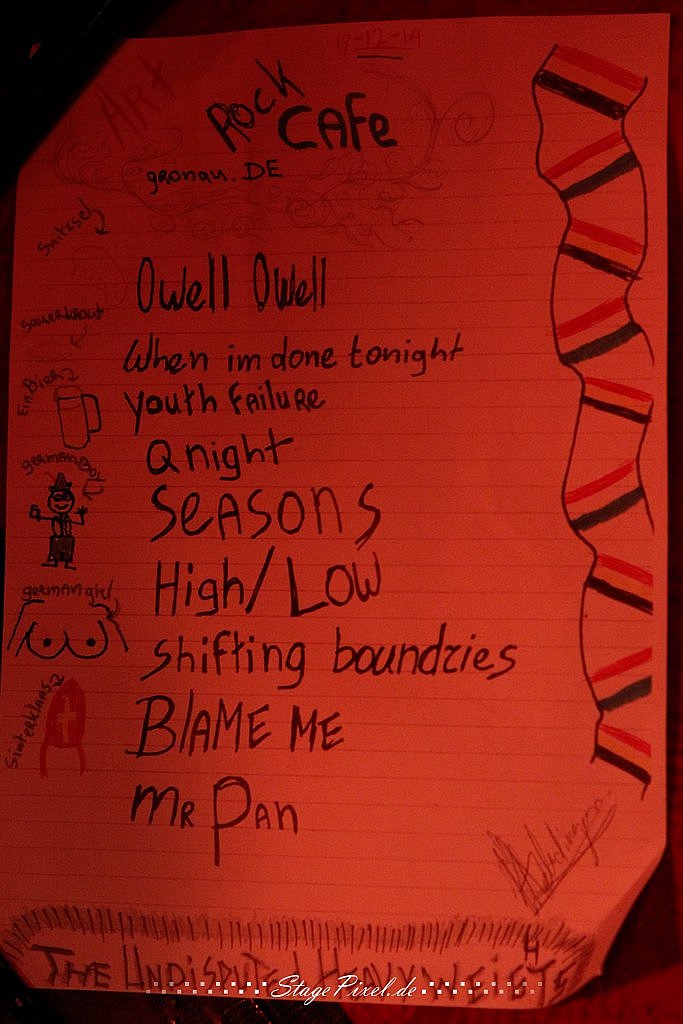 19-12-14
Art
Rock
CAFe
gronau.DE
Snitzsel
Owell Owell
Sauerkraut
When im done tonight
Ein Bier
Youth FaiLuRe
Q night
german Boy
SeASONS
High/Low
german girl
Shifting boundries
Sinterklaas
BlAME ME
MR Pan
THE UNDISPUTED HEAVYWEIGHTS
StagePixel.de